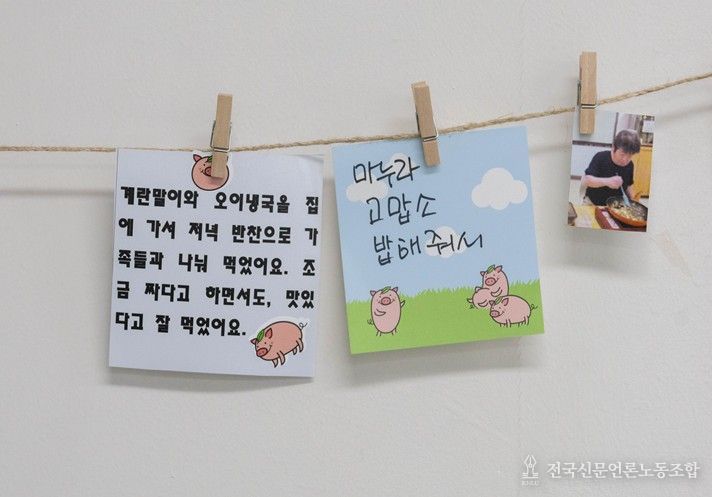 계란말이와 오이냉국을 집
에 가서 저녁 반찬으로 가
족들과 나눠 먹었어요. 조
금 짜다고 하면서도, 맛있
다고 잘 먹었어요.
마누라
고맙소
밥해줘서
전국신문언론노동조합